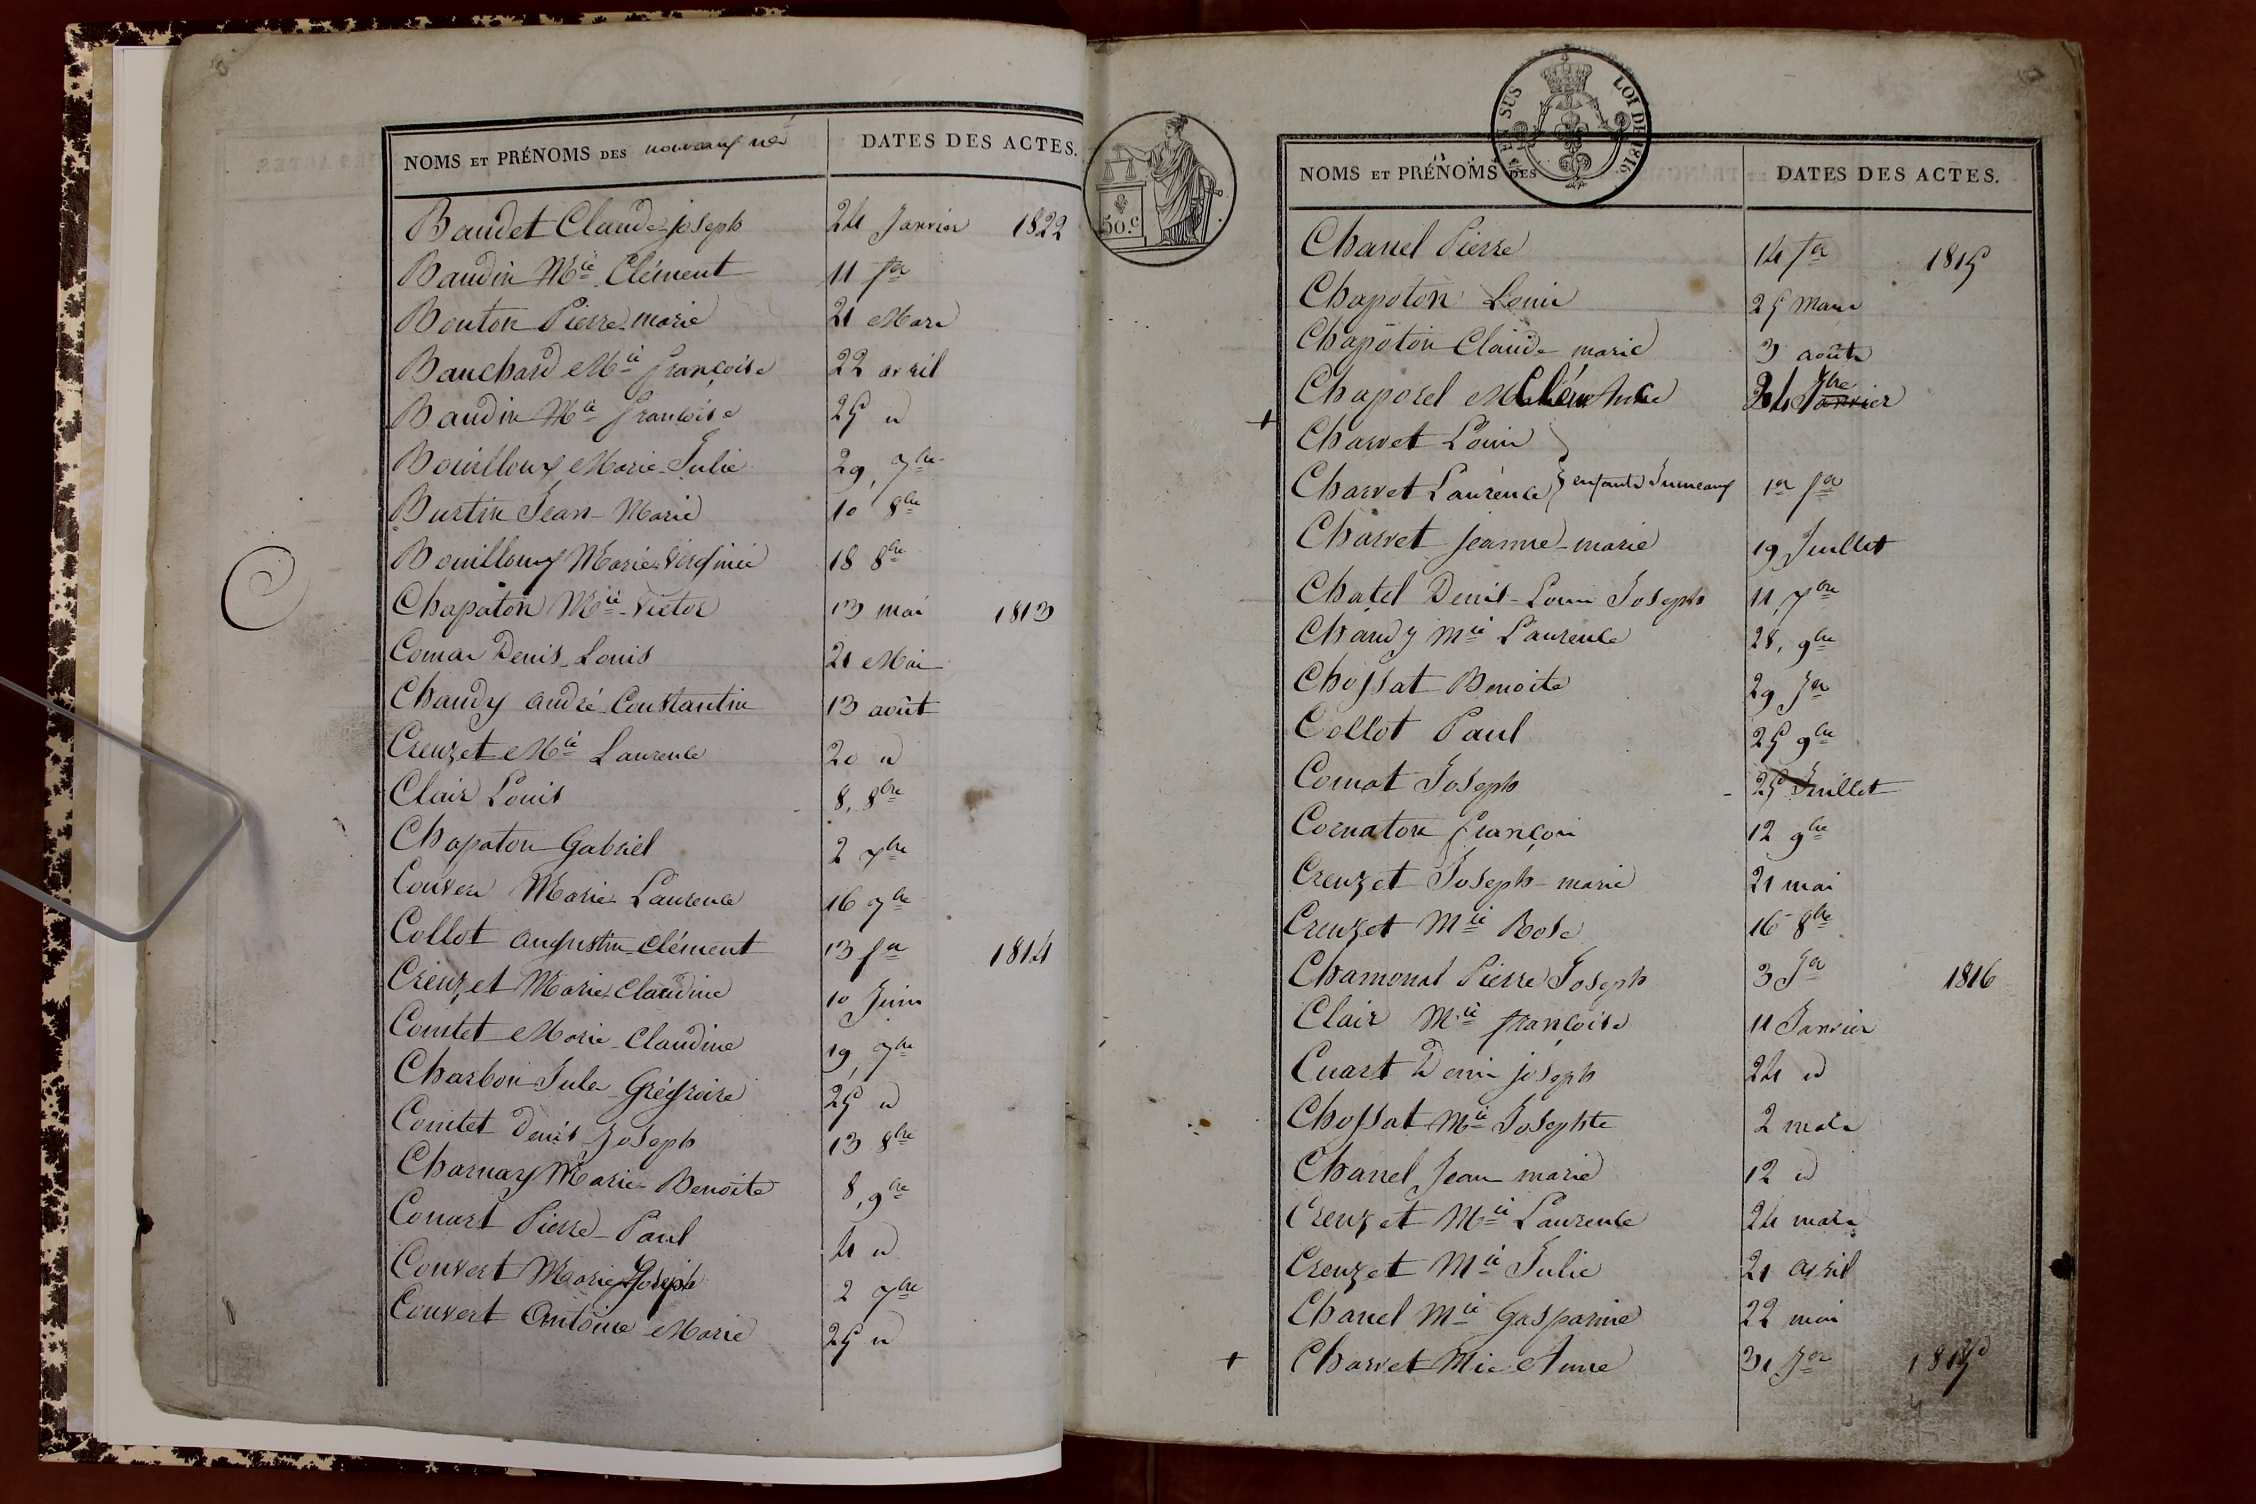 NOMS ET PRÉNOMS DES nouveaux nés DATES DES ACTES.
Baudet Claude joseph 24 Janvier 1822
Baudin Mie Clément 11 fer
Bouton Pierre marie 21 Mars
Bauchard Mie françoise 22 avril
Baudin Mie françoise 25 id
Bouilloux Marie Julie 29, 7bre
Burtin Jean-Marie 10 8bre
Bouilloux Marie Virginie 18 8bre
C
Chapaton Mie Victor 13 mai 1813
Comas Denis Louis 21 Mai
Chaudy andré Constantin 13 août
Creuzet Mie Laurence 20 id
Clair Louis 8, 8bre
Chapaton Gabriel 2 7bre
Marie Laurence 16 7bre
Collot augustin Clément 13 fer 1814
Creuzet Marie Claudine 10 Juin
Comtet Marie Claudine 19, 7bre
Charbon Jule Grégroire 25 id
Comtet Denis Joseph 13 8bre
Charnay Marie Benoite 8, 9bre
Pierre-Paul 4 id
Convert Marie Joseph 2 7bre
Convert Antoine Marie 25 id
50.c
EN SUS LOI DE 1816
NOMS ET PRÉNOMS DES DATES DES ACTES.
Chanel Pierre 14 fer 1815
Chapoton Louis 25 mars
Chapoton Claude marie 3 août
Chaporel
+ Charvet Louis
Charvet Laurence } enfants Jumeaux 1er fer
Charvet Jeanne-marie 19 Juillet
Chatel Denis-Louis Joseph 11, 7bre
Chaudy Mie Laurence 28, 9bre
Chossat Benoite 29 Jer
Collot Paul 25 9bre
Comat Joseph 25 Juillet
Cornaton françois 12 9bre
Creuzet Joseph-marie 21 mai
Creuzet Mie Rose 16 8bre
Chamonal Pierre Joseph 3 Jer 1816
Clair Mie françoise 11 Janvier
Cuart Denis joseph 24 id
Chossat Mie Josephte 2 mars
Chanel Jean marie 12 id
Creuzet Mie Laurence 24 mars
Creuzet Mie Julie 21 avril
Chanel Mie Gasparine 22 mai
+ Charvet Mie Anne 31 Jer